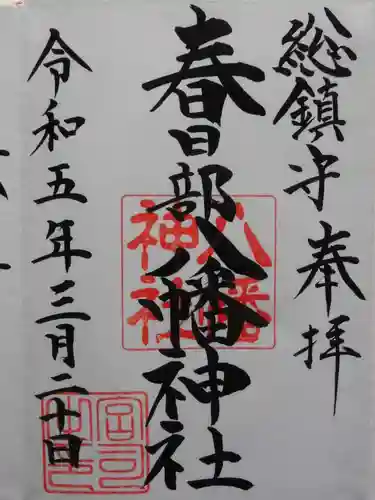 総鎮守奉拝
春日部八幡神社
令和五年三月二十日
八幡
神社
宮司之印